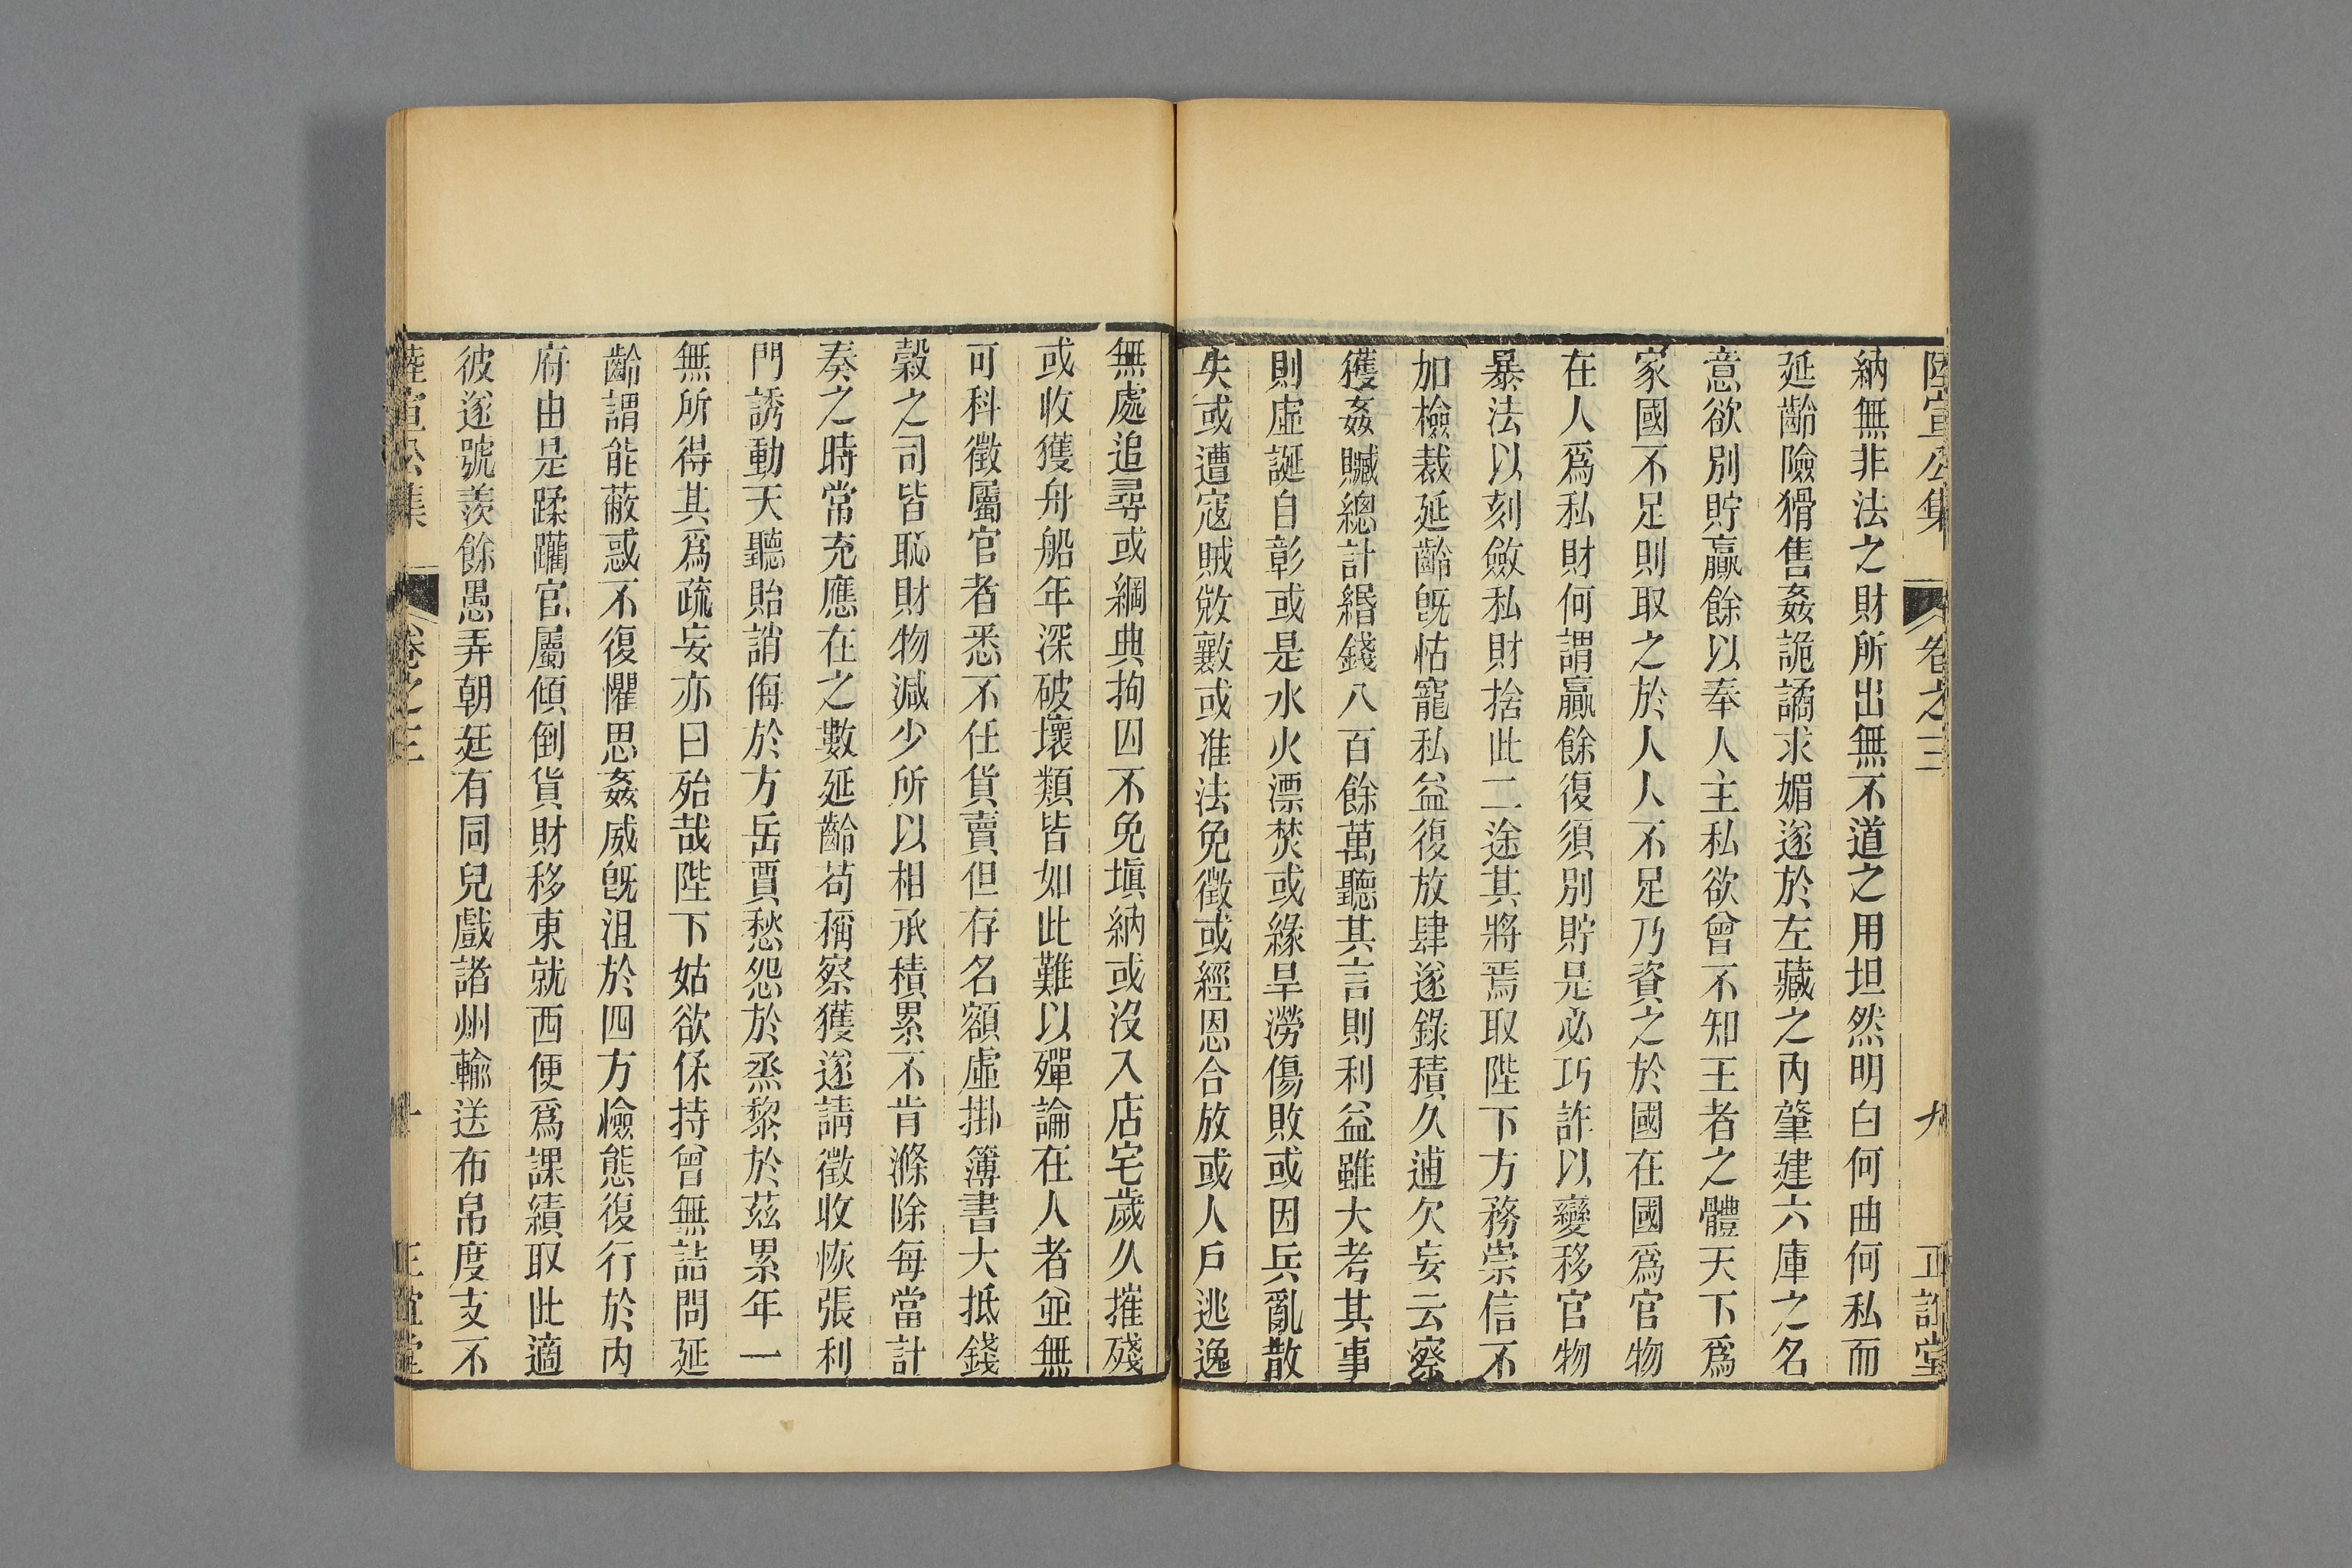 陸宣公集 卷之三 九 正誼堂
納無非法之財所出無不道之用坦然明白何曲何私而
延齡險猾售姦詭譎求媚遂於左藏之內肇建六庫之名
意欲別貯贏餘以奉人主私欲曾不知王者之體天下爲
家國不足則取之於人人不足乃資之於國在國爲官物
在人爲私財何謂贏餘復須別貯是必巧詐以變移官物
暴法以刻斂私財捨此二途其將焉取陛下方務崇信不
加檢裁延齡旣怙寵私益復放肆遂錄積久逋欠妄云察
獲姦贓總計緡錢八百餘萬聽其言則利益雖大考其事
則虛誕自彰或是水火漂焚或緣旱澇傷敗或因兵亂散
失或遭寇賊敓敭或准法免徵或經恩合放或人戶逃逸
無處追尋或綱典拘囚不免塡納或沒入店宅歲久摧殘
或收獲舟船年深破壞類皆如此難以殫論在人者並無
可科徵屬官者悉不任貨賣但存名額虛掛簿書大抵錢
穀之司皆恥財物減少所以相承積累不肯滌除每當計
奏之時常充應在之數延齡苟稱察獲遂請徵收恢張利
門誘動天聽貽誚侮於方岳賈愁怨於烝黎於茲累年一
無所得其爲疏妄亦曰殆哉陛下姑欲保持曾無詰問延
齡謂能蔽惑不復懼思姦威旣沮於四方憸態復行於內
府由是蹂躪官屬傾倒貨財移東就西便爲課績取此適
彼遂號羨餘愚弄朝廷有同兒戲諸州輸送布帛度支不
陸宣公集 卷之三 十 正誼堂